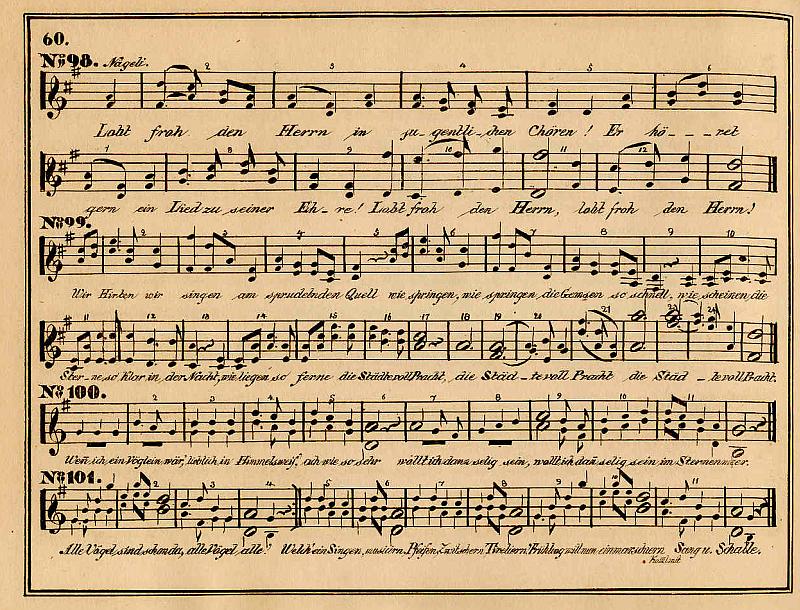 60.
No. 98. Nägeli.
1 2 3 4 5 6
Lobt froh den Herrn in ju-gentli-chen Chören! Er hö---ret
7 8 9 10 11 12
gern ein Lied zu seiner Eh-re! Lobt froh den Herrn, lobt froh den Herrn!
No. 99.
2 3 4 5 6 7 8 9 10
Wir Hirten wir singen am sprudelnden Quell wie springen, wie springen die Gemsen so schnell, wie scheinen die
11 12 13 14 15 16 17 18 19 20 21 22 23 24
Ster-ne, so klar in der Nacht, wie liegen so ferne die Städte voll Pracht, die Städ-te voll Pracht die Städ-te voll Pracht.
No. 100.
2 3 4 5 6 7 8 9 10 11
Wen̄ ich ein Vöglein wär', lieblich in Himmels weit, ach wie so sehr wollt ich dan̄ selig sein, wollt ich dan̄ selig sein im Sternenmeer.
No. 101.
2 3 4 5 6 7 8 9 10 11
Alle Vögel, sind schon da, alle Vögel, alle! Welch' ein Singen, Pfeifen, Zwitschern, Tirelieren! Frühling will nun einmarschieren Sang u. Schalle.